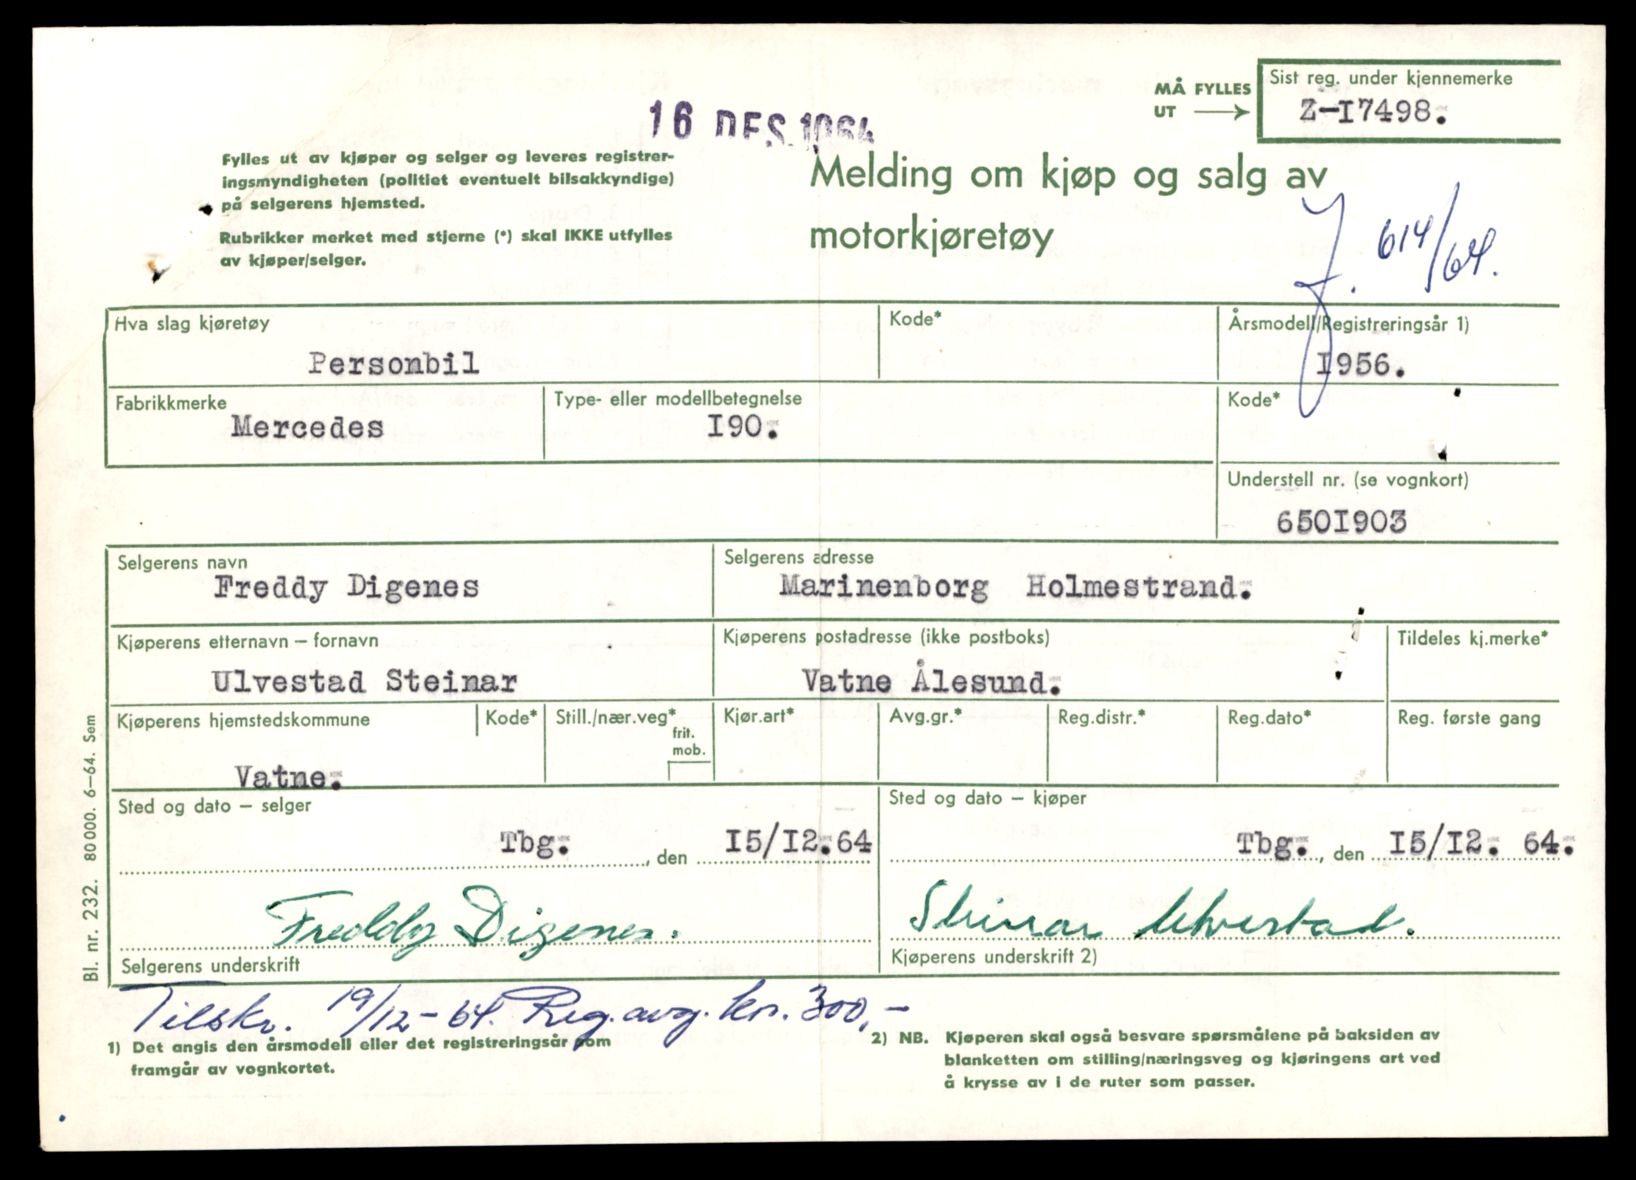 MÅ FYLLES
UT
Sist reg. under kjennemerke
Z-I7498.
16 DES. 1964
Fylles ut av kjøper og selger og leveres registrer-
ingsmyndigheten (politiet eventuelt bilsakkyndige)
på selgerens hjemsted.
Rubrikker merket med stjerne (*) skal IKKE utfylles
av kjøper/selger.
Melding om kjøp og salg av
motorkjøretøy
J. 614/64.
Hva slag kjøretøy
Personbil
Kode*
Årsmodell/Registreringsår 1)
I956.
Fabrikkmerke
Mercedes
Type- eller modellbetegnelse
I90.
Kode*
Understell nr. (se vognkort)
650I903
Selgerens navn
Freddy Digenes
Selgerens adresse
Marinenborg Holmestrand.
Kjøperens etternavn – fornavn
Ulvestad Steinar
Kjøperens postadresse (ikke postboks)
Vatne Ålesund.
Tildeles kj.merke*
Kjøperens hjemstedskommune
Vatne.
Kode*
Still./nær.veg*
frit.
mob.
Kjør.art*
Avg.gr.*
Reg.distr.*
Reg.dato*
Reg. første gang
Sted og dato – selger
Tbg. , den I5/I2.64
Sted og dato – kjøper
Tbg. , den I5/I2. 64.
Freddy Digenes.
Selgerens underskrift
Steinar Ulvestad.
Kjøperens underskrift 2)
Tilskr. 19/12-64. Reg.avg. kr. 300,-
1) Det angis den årsmodell eller det registreringsår som
framgår av vognkortet.
2) NB. Kjøperen skal også besvare spørsmålene på baksiden av
blanketten om stilling/næringsveg og kjøringens art ved
å krysse av i de ruter som passer.
Bl. nr. 232. 80 000. 6–64. Sem